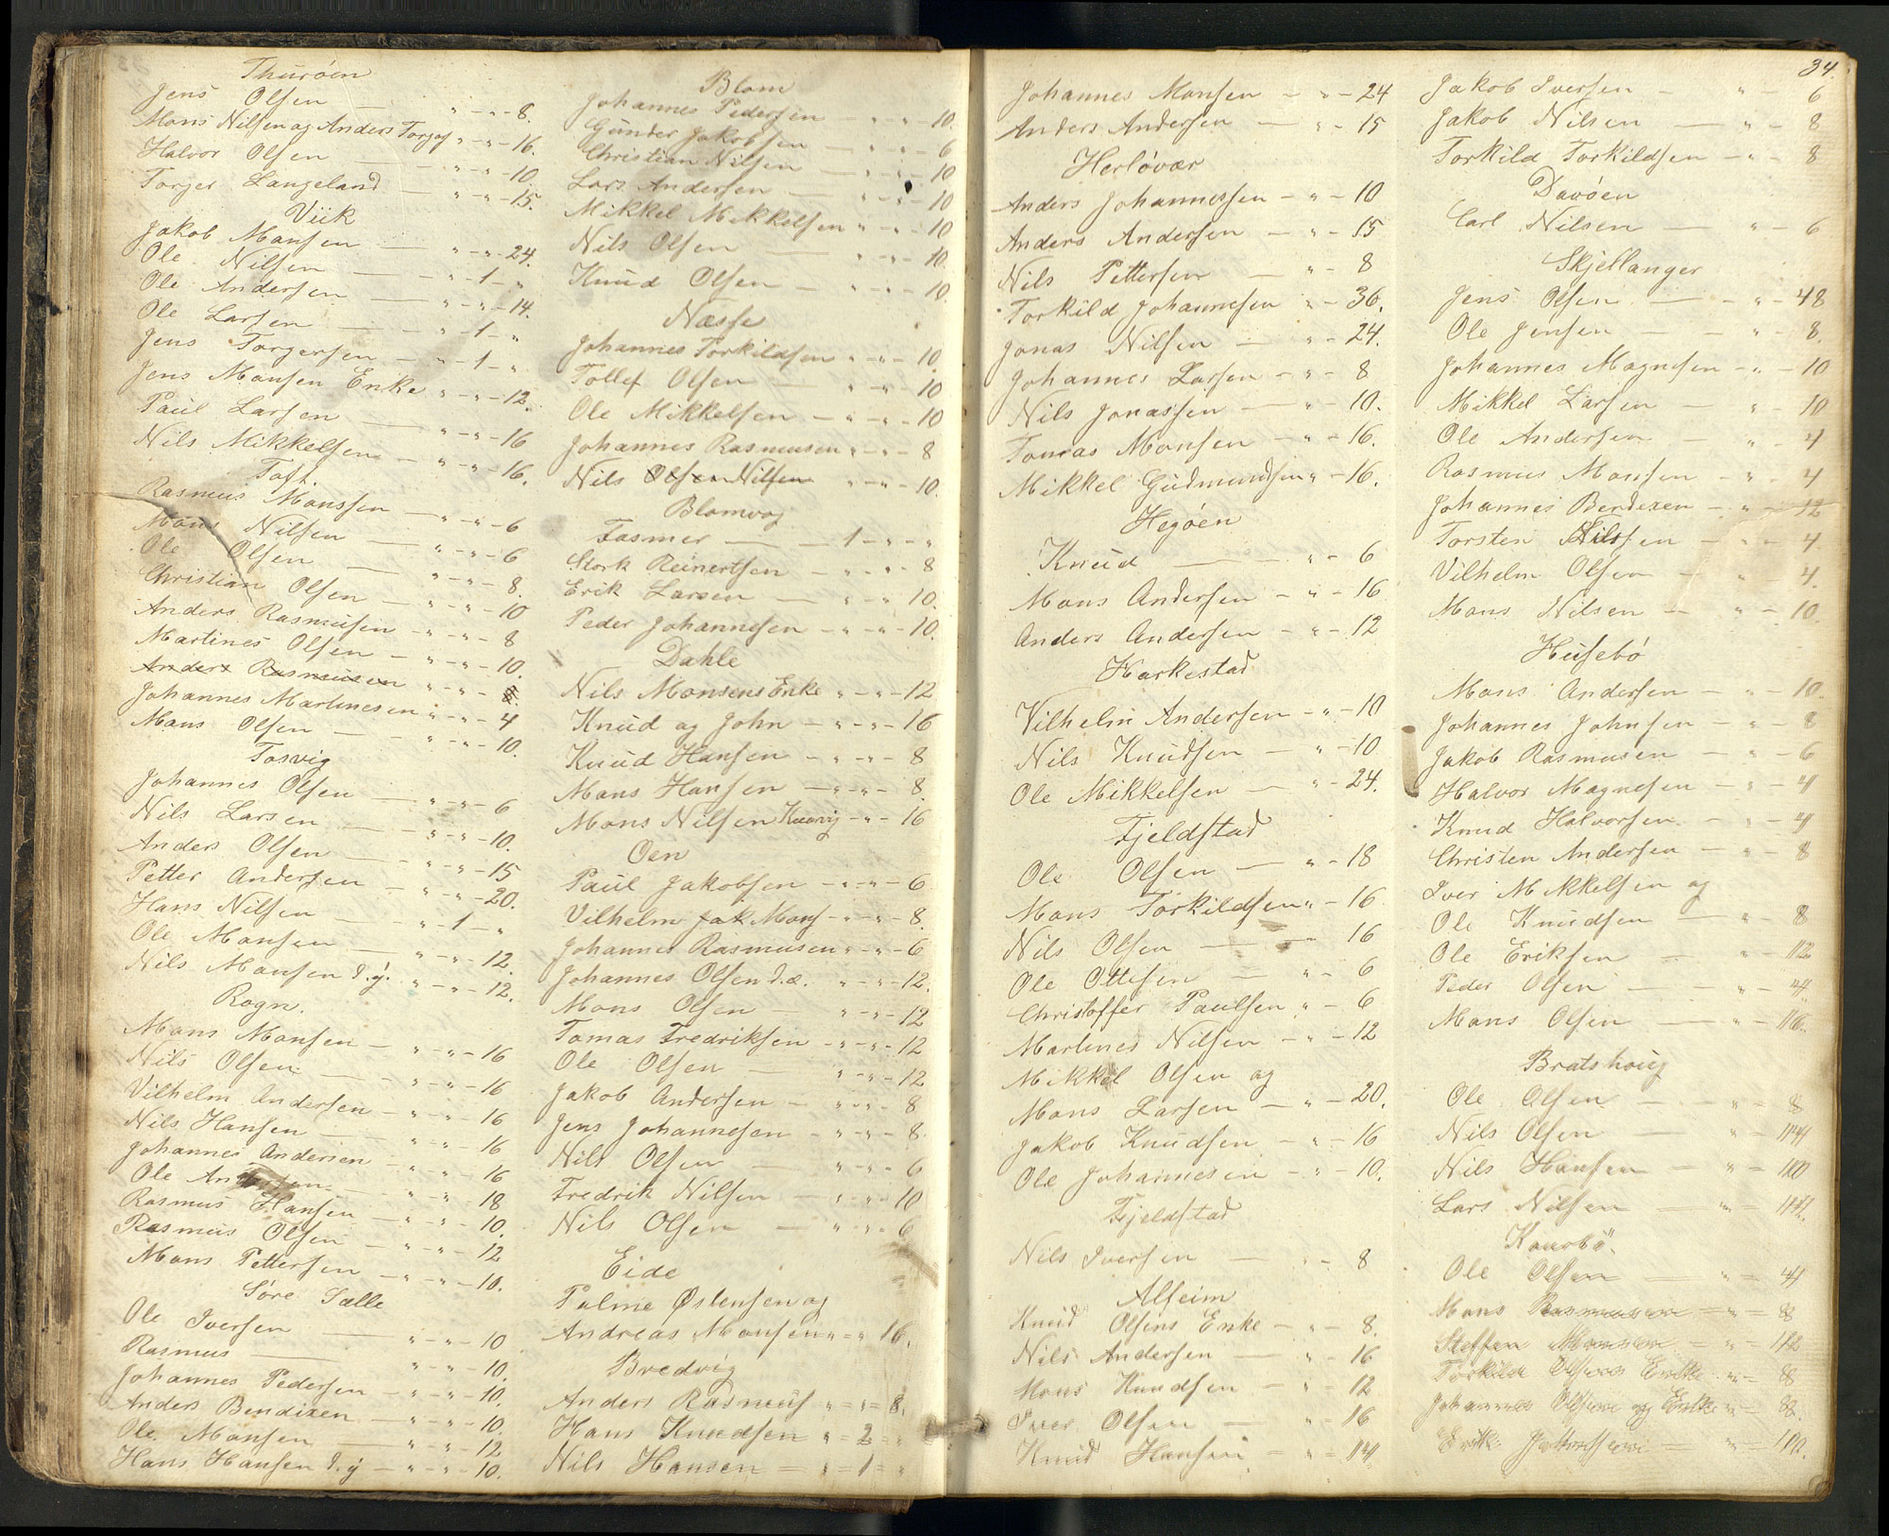 Thuröen
Jens Olsen — " - " - 8.
Mons Nilsen og Anders Torgej " - " - 16.
Halvor Olsen — " - " - 10
Torger Langeland — " - " - 15.
Viik
Jakob Monsen — " - " - 24.
Ole Nilsen — " - 1 - "
Ole Andersen — " - " - 14.
Ole Larsen — " - 1 - "
Jens Torgersen — " - 1 - "
Jens Monsen Enke " - " - 12.
Paul Larsen — " - " - 16
Nils Mikkelsen — " - " - 16.
Toft.
Rasmus Monssen — " - " - 6
Mons Nilsen — " - " - 6
Ole Olsen — " - " - 8.
Christian Olsen — " - " - 10
Anders Rasmusen — " - " - 8
Martines Olsen — " - " - 10.
Anders Rasmusen — " - " - 8.
Johannes Martinesen " - " - 4
Mons Olsen — " - " - 10.
Tosvig
Johannes Olsen — " - " - 6
Nils Larsen — " - " - 10.
Anders Olsen — " - " - 15
Petter Andersen — " - " - 20.
Hans Nilsen — " - 1 - "
Ole Monsen — " - " - 12.
Nils Monsen d.y. " - " - 12.
Rogn.
Mons Monsen — " - " - 16
Nils Olsen — " - " - 16
Vilhelm Andersen — " - " - 16
Nils Hansen — " - " - 16
Johannes Andersen — " - " - 16
Ole — " - " - 18
Rasmus Hansen — " - " - 10.
Rasmus Olsen — " - " - 12
Mons Pettersen — " - " - 10.
Söre Sælle
Ole Iversen " - " - 10
Rasmus — " - " - 10.
Johannes Pedersen — " - " - 10.
Anders Bendixen — " - " - 10.
Ole Monsen — " - " - 12.
Hans Hansen d.y — " - " - 10.
Blom
Johannes Pedersen " - " - 10.
Gunder Jakobsen — " - " - 6
Christian Nilsen — " - " - 10
Lars Andersen — " - " - 10
Mikkel Mikkelsen " - " - 10
Nils Olsen — " - " - 10.
Knud Olsen — " - " - 10.
Næsse
Johannes Torkildsen " - " - 10.
Tollef Olsen — " - " - 10
Ole Mikkelsen — " - " - 10
Johannes Rasmusen " - " - 8
Nils Olsen Nilsen " - " - 10.
Blomvog
Fasmer — 1 - " - "
Stork Reinertsen — " - " - 8
Erik Larsen — " - " - 10.
Peder Johannesen — " - " - 10.
Dahle
Nils Monsens Enke " - " - 12
Knud og John — " - " - 16
Knud Hansen — " - " - 8
Mons Hansen — " - " - 8.
Mons Nilsen " - 16
Oen
Paul Jakobsen — " - " - 6
Vilhelm Jak Mons - " - " - 8.
Johannes Rasmusen " - " - 6
Johannes Olsen d.æ. " - " - 12.
Mons Olsen — " - " - 12
Tomas Fredriksen — " - " - 12
Ole Olsen — " - " - 12
Jakob Andersen — " - " - 8
Jens Johannesen — " - " - 8.
Nils Olsen — " - " - 6
Fredrik Nilsen — " - " - 10
Nils Olsen — " - " - 6
Eide
Palme Østensen og
Andreas Monsen " - " 16.
Bredvig
Anders Rasmus " = " = 8.
Hans Knudsen " = 2 = "
Nils Hansen = " = 1 = "
34.
Johannes Monsen — " - 24
Anders Andersen — " - 15
Herlövær
Anders Johannessen — " - 10
Anders Andersen — " - 15
Nils Pettersen — " - 8
Torkild Johannesen " - 36.
Jonas Nilsen — " - 24.
Johannes Larsen — " - 8
Nils Jonassen — " - 10.
Tomas Monsen — " - 16.
Mikkel Gudmundsen " - 16.
Hegöen
Knud — " - 6
Mons Andersen — " - 16
Anders Andersen — " - 12
Harkestad
Vilhelm Andersen — " - 10
Nils Knudsen — " - 10
Ole Mikkelsen — " - 24.
Fjeldstad
Ole Olsen — " - 18
Mons Torkildsen " - 16
Nils Olsen — 16
Ole Ottesen — " - 6
Christoffer Paulsen " - 6
Martines Nilsen — " - 12
Mikkel Olsen og
Mons Larsen — " - 20.
Jakob Knudsen — " - 16
Ole Johannesen — " - 10.
Fjeldstad
Nils Iversen — " - 8
Alfeim
Knud Olsens Enke — " - 8.
Nils Andersen — " - 16
Mons Knudsen — " - 12
Iver Olsen — " - 16
Knud Hansen — " - 14
Jakob Iversen — " - 6
Jakob Nilsen — " - 8
Torkild Torkildsen — " - 8
Davöen
Carl Nilsen — " - 6
Skjellanger
Jens Olsen — " - 48
Ole Jensen — " - 8.
Johannes Magnesen — " - 10
Mikkel Larsen — " 10
Ole Andersen — " - 4
Rasmus Monsen — " - 4
Johannes Bendixen — " - 12
Torsten Nilssen — " - 4
Vilhelm Olsen — " - 4.
Mons Nilsen — " - 10.
Husebö
Mons Andersen — " - 10.
Johannes Johnsen — " 8
Jakob Rasmusen — " - 6
Halvor Magnesen — " - 4
Knud Halvorsen — " - 4
Christen Andersen — " - 8
Iver Mikkelsen og
Ole Knudsen — " - 8
Ole Eriksen — " - 12
Peder Olsen — " - 4.
Mons Olsen — " - 16.
Bratshoug
Ole Olsen — " - 8
Nils Olsen — " 14
Nils Hansen — " = 10
Lars Nilsen — " = 14.
Kaurbö.
Ole Olsen — " = 4
Mons Rasmusen = " = 8
Steffen Monsen = " = 12
Torkild Olsens Enke " = 8
Johannes Olsen og Enke " = 8.
Erik — " = 10.